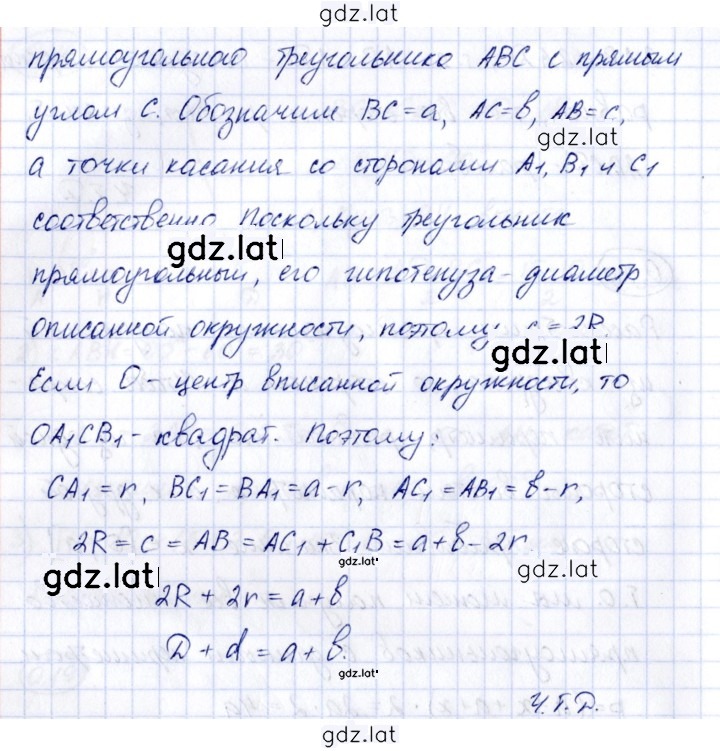 gdz.lat
прямоугольного треугольника ABC с прямым
углом C. Обозначим BC = a, AC = b, AB = c,
gdz.lat
а точки касания со сторонами A1, B1 и C1
соответственно Поскольку треугольник
gdz.lat
прямоугольный, его гипотенуза - диаметр
описанной окружности, поэтому c = 2R
gdz.lat
Если O - центр вписанной окружности, то
OA1CB1 - квадрат. Поэтому:
CA1 = r, BC1 = BA1 = a - r, AC1 = AB1 = b - r,
2R = c = AB = AC1 + C1B = a + b - 2r.
gdz.lat
gdz.lat
gdz.lat
2R + 2r = a + b
D + d = a + b.
gdz.lat
Ч.Т.Д.
gdz.lat